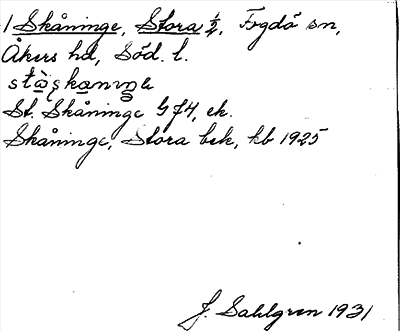 1 Skåninge, Stora ½, Fogdö sn,
Åkers hd, Söd. l.
St. Skåninge GJ4, ek.
Skåninge, Stora bek, kb 1925
J. Sahlgren 1931